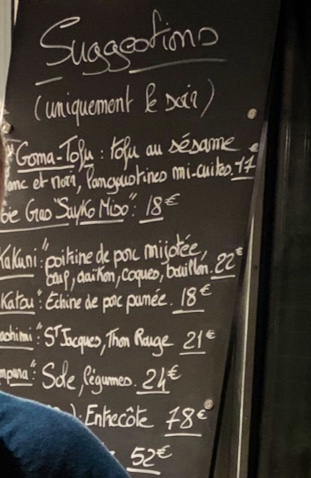 Suggestions
(uniquement le soir)
"Goma-Tofu: tofu au sésame
blanc et noir, langoustines mi-cuites. 17
Gao "Saÿko Miso": 18€
Kakuni": poitrine de porc mijotée,
œuf, daïkon, coques, bouillon. 22€
Katsu": Echine de porc panée. 18€
ashimi": St Jacques, Thon Rouge 21€
mpura": Sole, légumes. 24€
: Entrecôte 78€
52€